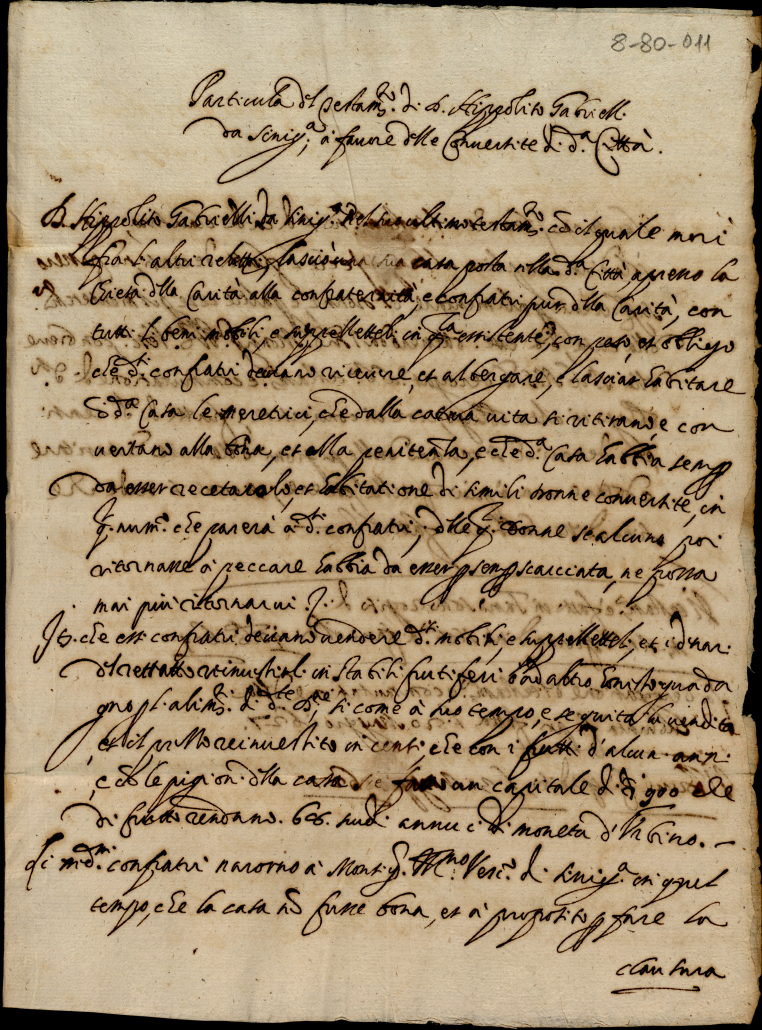 8-80-011
Particula del testam.to di D. Hippolito Gabriell.
da Sinig.a, à favore delle Convertite di d.a Città.
D. Hippolito Gabrielli da Sinig.a nel suo ultimo testam.to cõ il quale morì
frà li altri relitti lasciò una sua casa posta nella d.a Città, apresso la
Chiesa della Carità alla confraternità, e confratri pur della Carità, con
tutti li beni mobili, e suppellettili in q.la essistente, con peso, et obbligo
che d.ti confratri devano ricevere, et albergare, e lasciar habitare
d.a Casa le meretrici, che dalla cativa vita si ritirano e con
vertano alla bona, et alla penitenza, e che d.a Casa habbia semp
da esser recetacolo, et habitatione di simili donne convertite, in
q. num.o che parerà à d.ti confratri, delle q. donne se alcuna poi
ritornasse à peccare habbia da esser p semp scacciata, ne possa
mai più ritornarvi
It. che essi confratri devano vendere d.ti mobili, e suppellettili, et i denari
del retratto rinvestirli in stabili fruttiferi ò ad altro honesto guada
gno p li alim.ti di d.te si come à suo tempo, e seguita la vendita
et il prezzo reinvestito in censi che con i frutti d'alcun anni
e cõ le pigioni della casa se fatto un capitale di 900 che
di frutto rendano scudi annui di moneta d'Urbino.
Li med.mi confratri Mons.r Ill.mo Vesc.o di Sinig.a in quel
tempo, che la casa nõ fusse bona, et à proposito p fare la
clausura